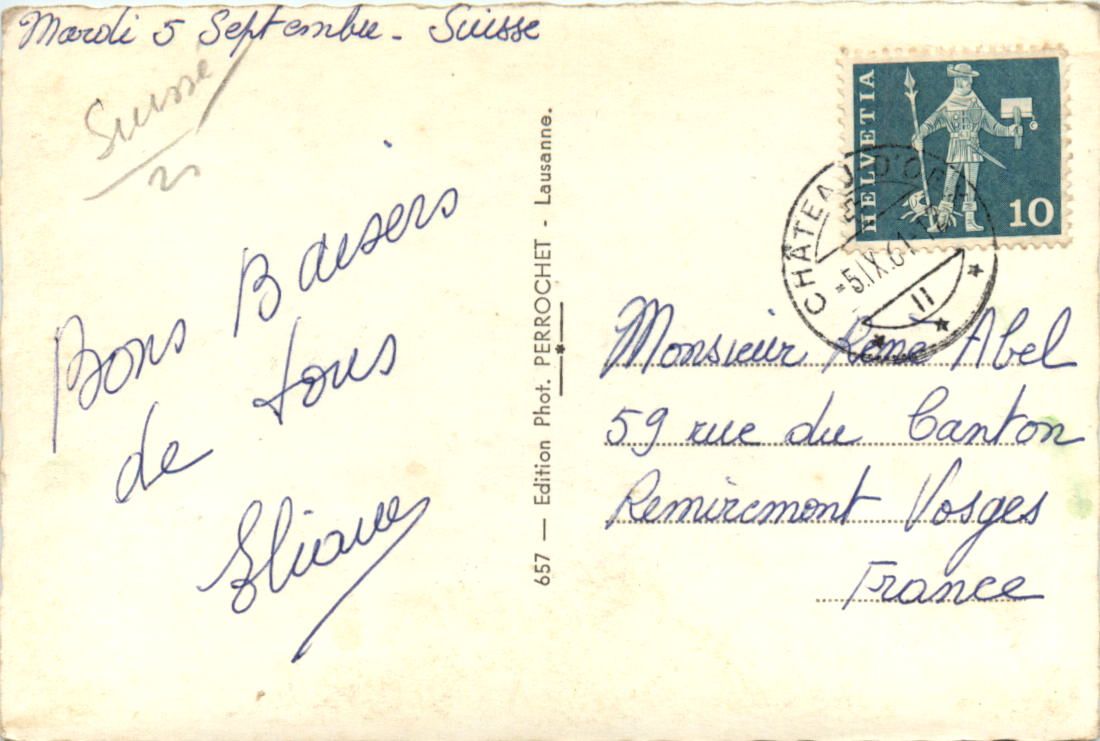 Mardi 5 Septembre - Suisse
Suisse
Bons Baisers
de tous
Eliane
657 — Edition Phot. PERROCHET - Lausanne.
HELVETIA
10
CHÂTEAU-D'OEX
-5.IX.61-12
II
Monsieur René Abel
59 rue du Canton
Remiremont Vosges
France